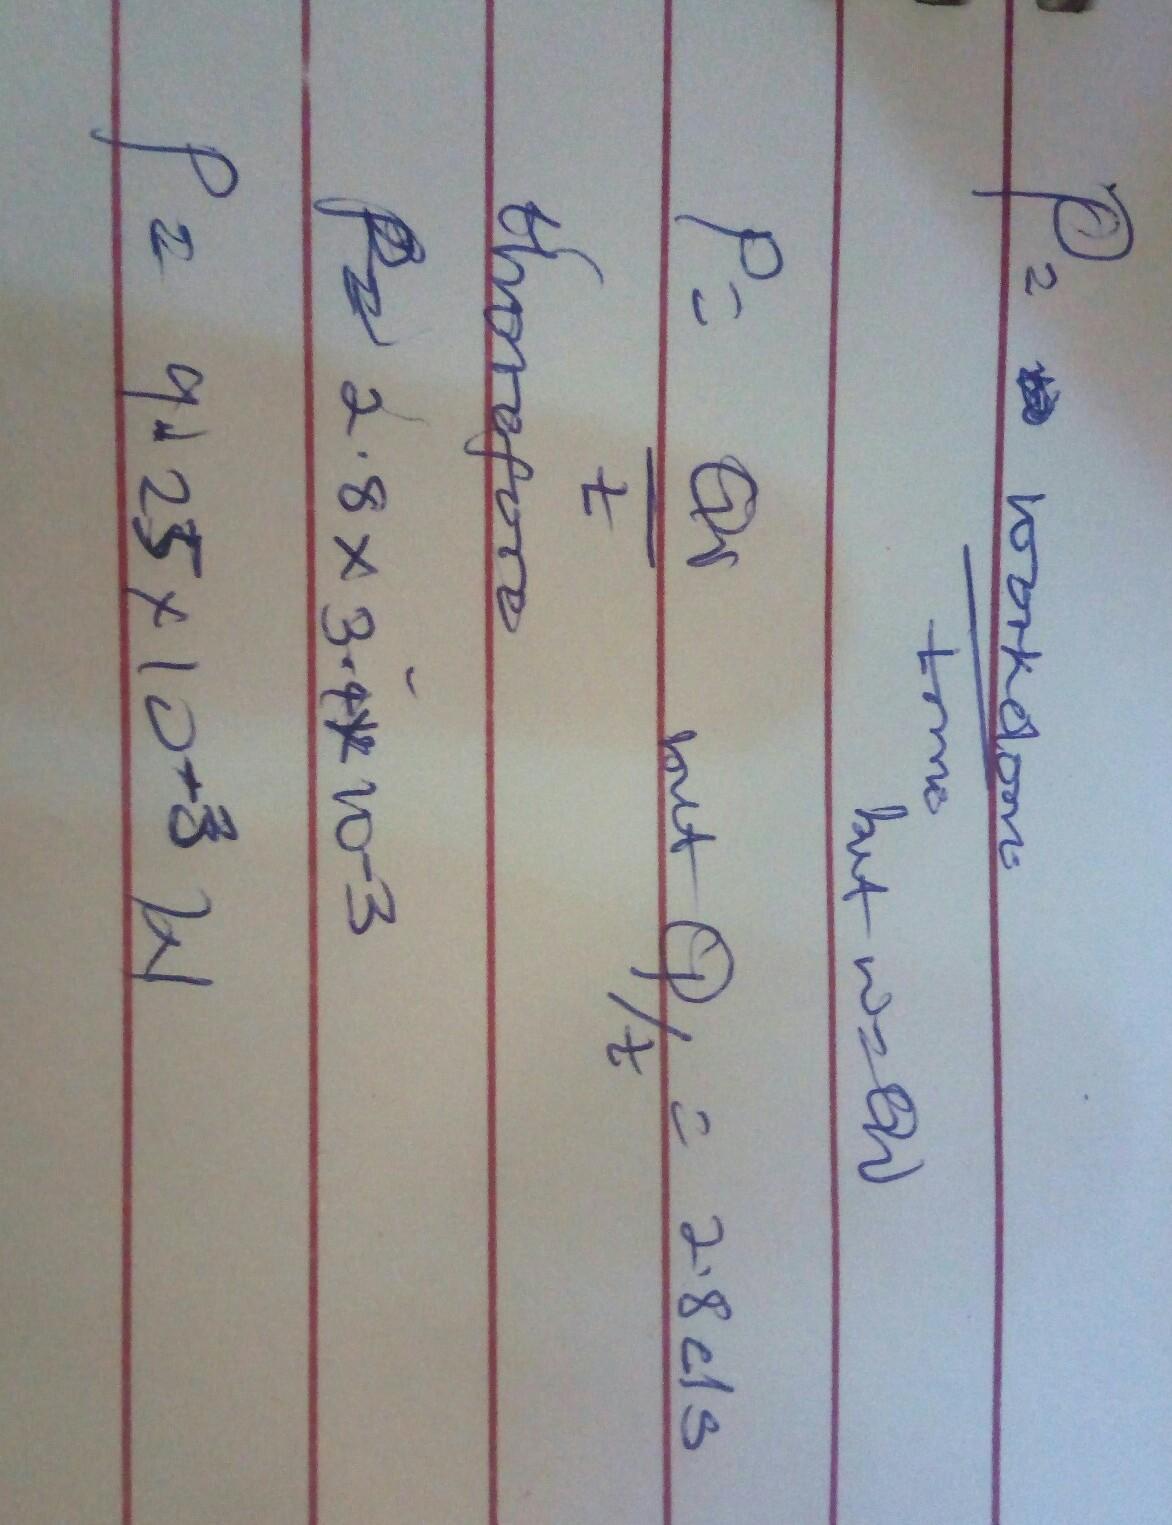 P = workdone
time
but w=QV
P= QV
t
but Q/t = 2.8 c/s
therefore
P= 2.8 x 3.4x10-3
P = 9.25x10-3 W